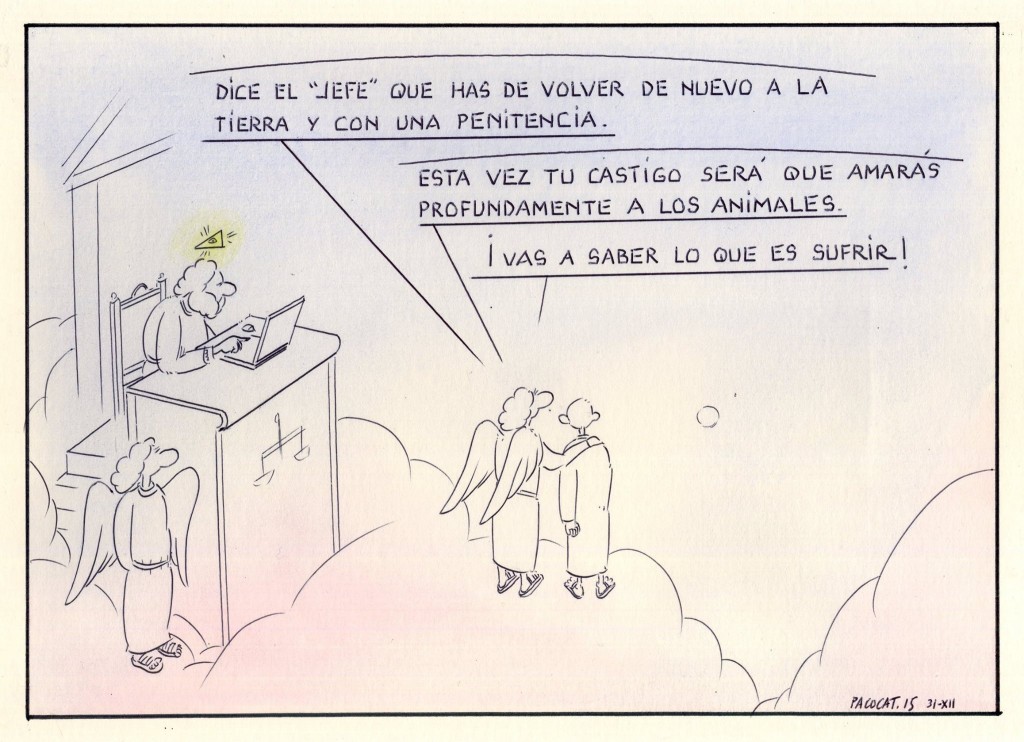 DICE EL "JEFE" QUE HAS DE VOLVER DE NUEVO A LA
TIERRA Y CON UNA PENITENCIA.
ESTA VEZ TU CASTIGO SERÁ QUE AMARÁS
PROFUNDAMENTE A LOS ANIMALES.
¡VAS A SABER LO QUE ES SUFRIR!
PACOCAT.15 31-XII